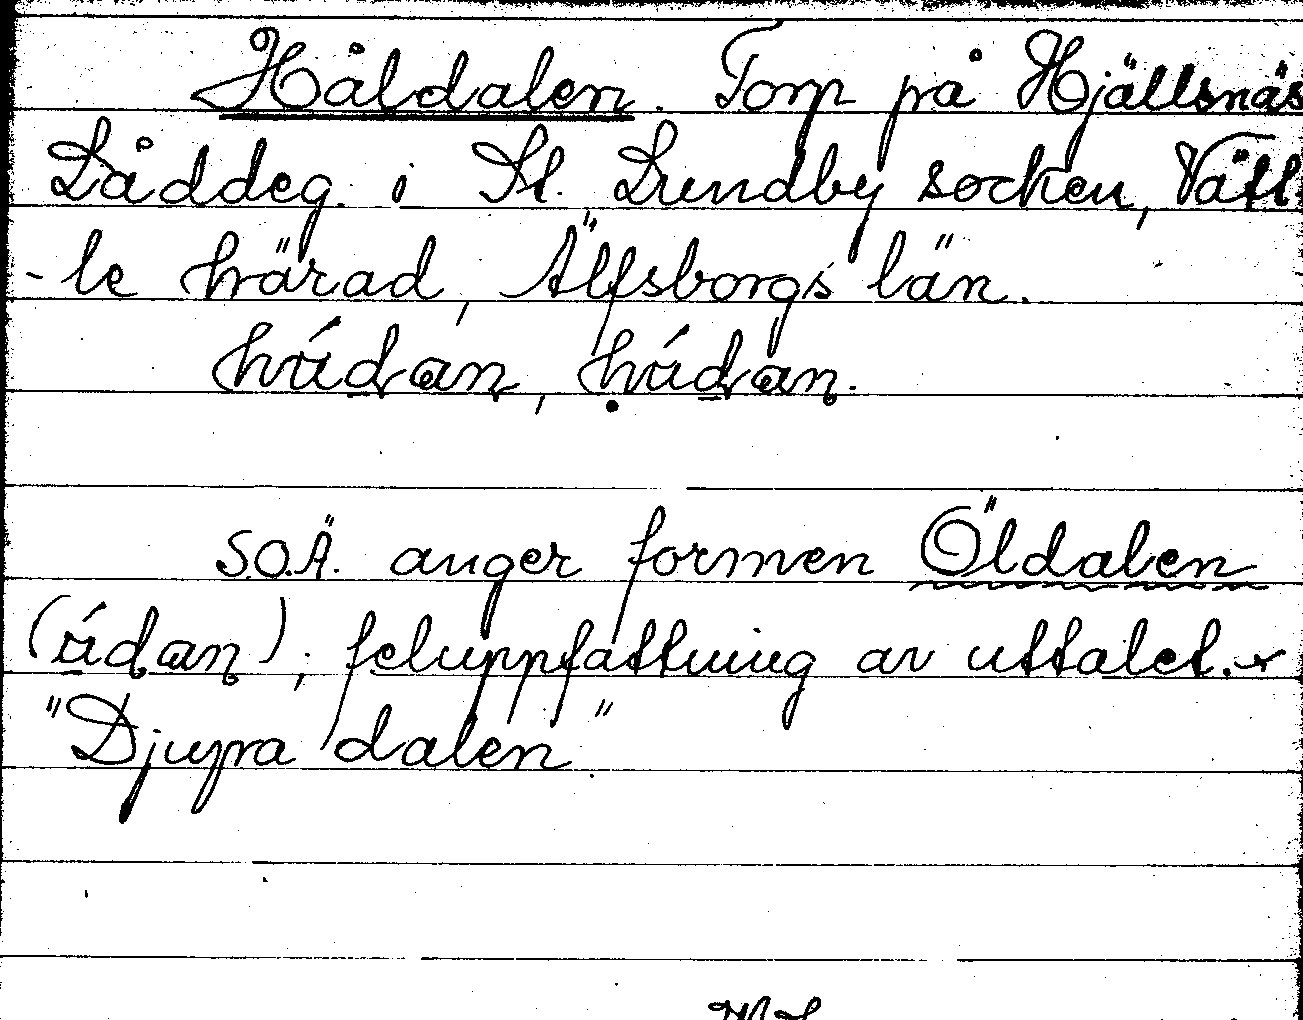 Håldalen. Torp på Hjällsnäs
Låddeg. i St. Lundby socken, Vätt
-le härad, Älfsborgs län.
S.O.Ä. anger formen Öldalen
; feluppfattning av uttalet.
"Djupa dalen"